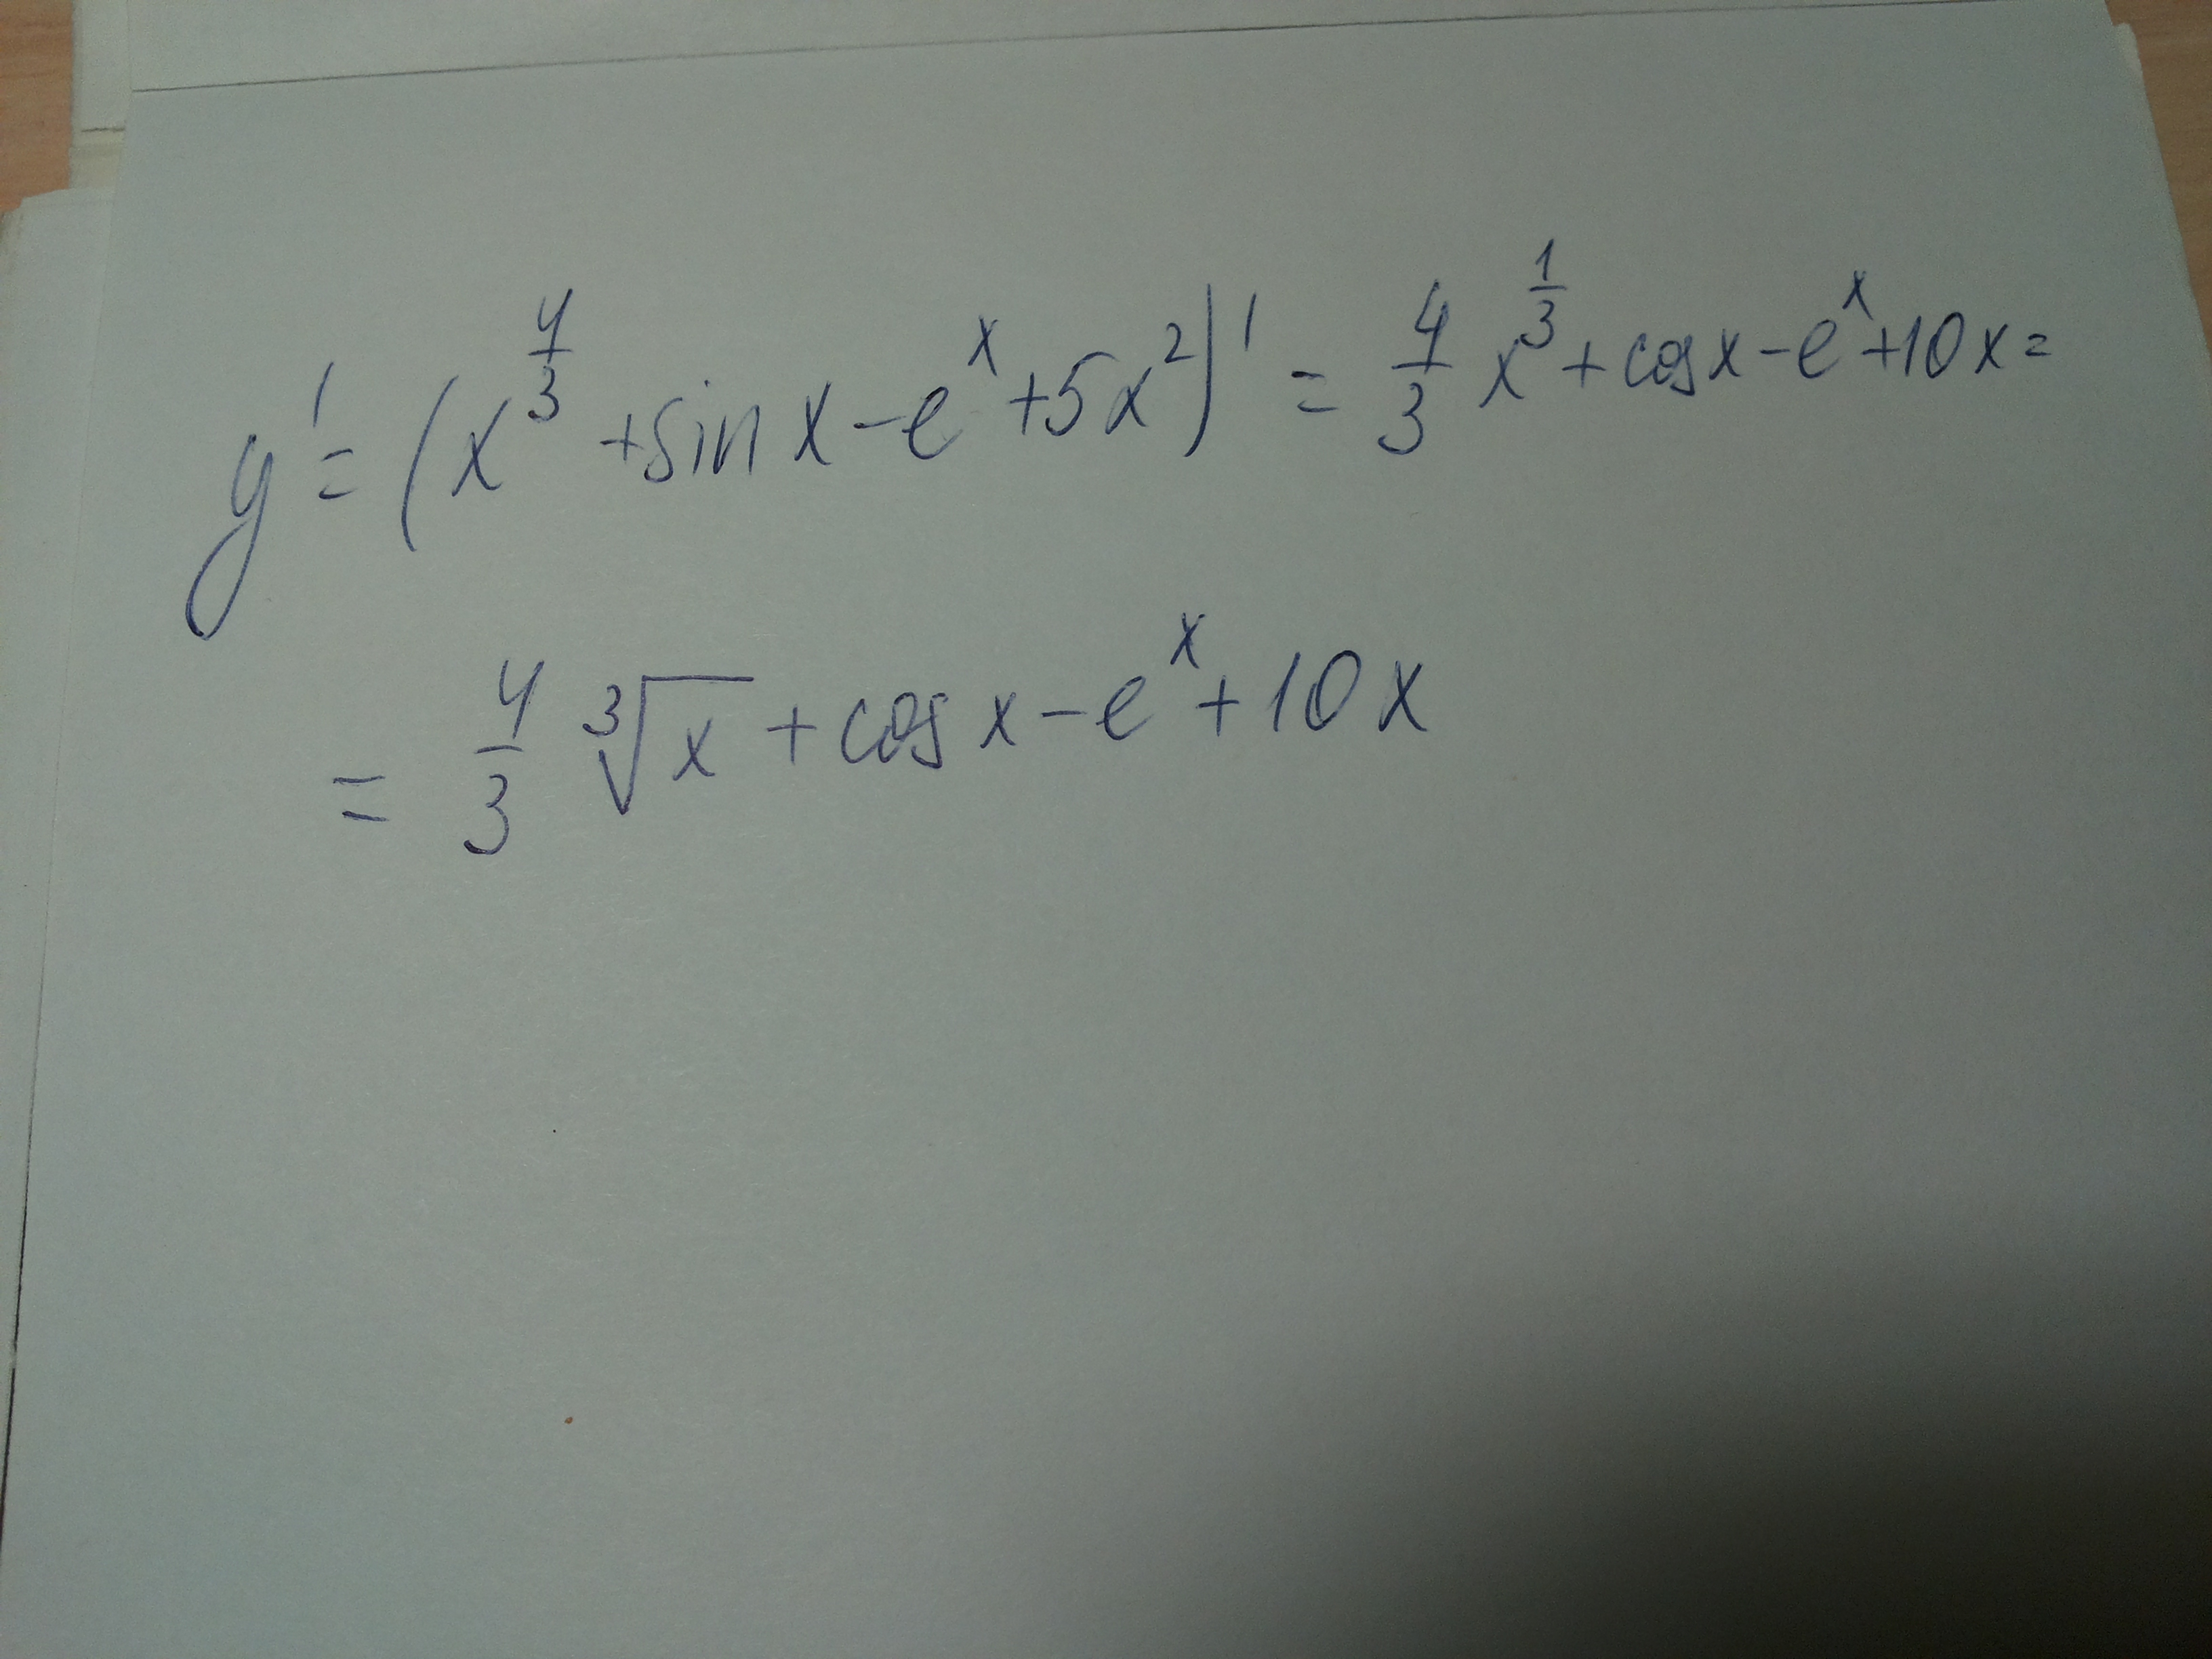 y' = (x^{4/3} + sin x - e^x + 5x^2)' = 4/3 x^{1/3} + cos x - e^x + 10x =
= 4/3 ∛x + cos x - e^x + 10x